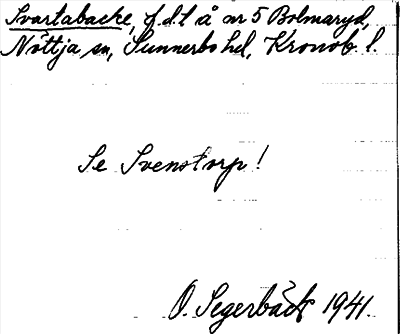 Svartabacke, f.d.l å nr 5 Bolmaryd,
Nöttja sn, Sunnerbo hd, Kronob. l.
Se Svenstorp!
O. Segerbäck 1941.